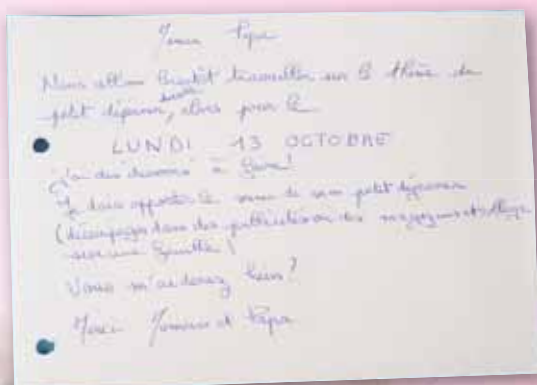 Maman Papa
Nous allons bientôt travailler sur le thème du
petit déjeuner, alors pour le
LUNDI 13 OCTOBRE
j'ai des "devoirs" à faire!
Je dois apporter le menu de mon petit déjeuner
(découpages dans des publicités ou des magazines et collage
sur une feuille)
Vous m'aiderez bien?
Merci Maman et Papa